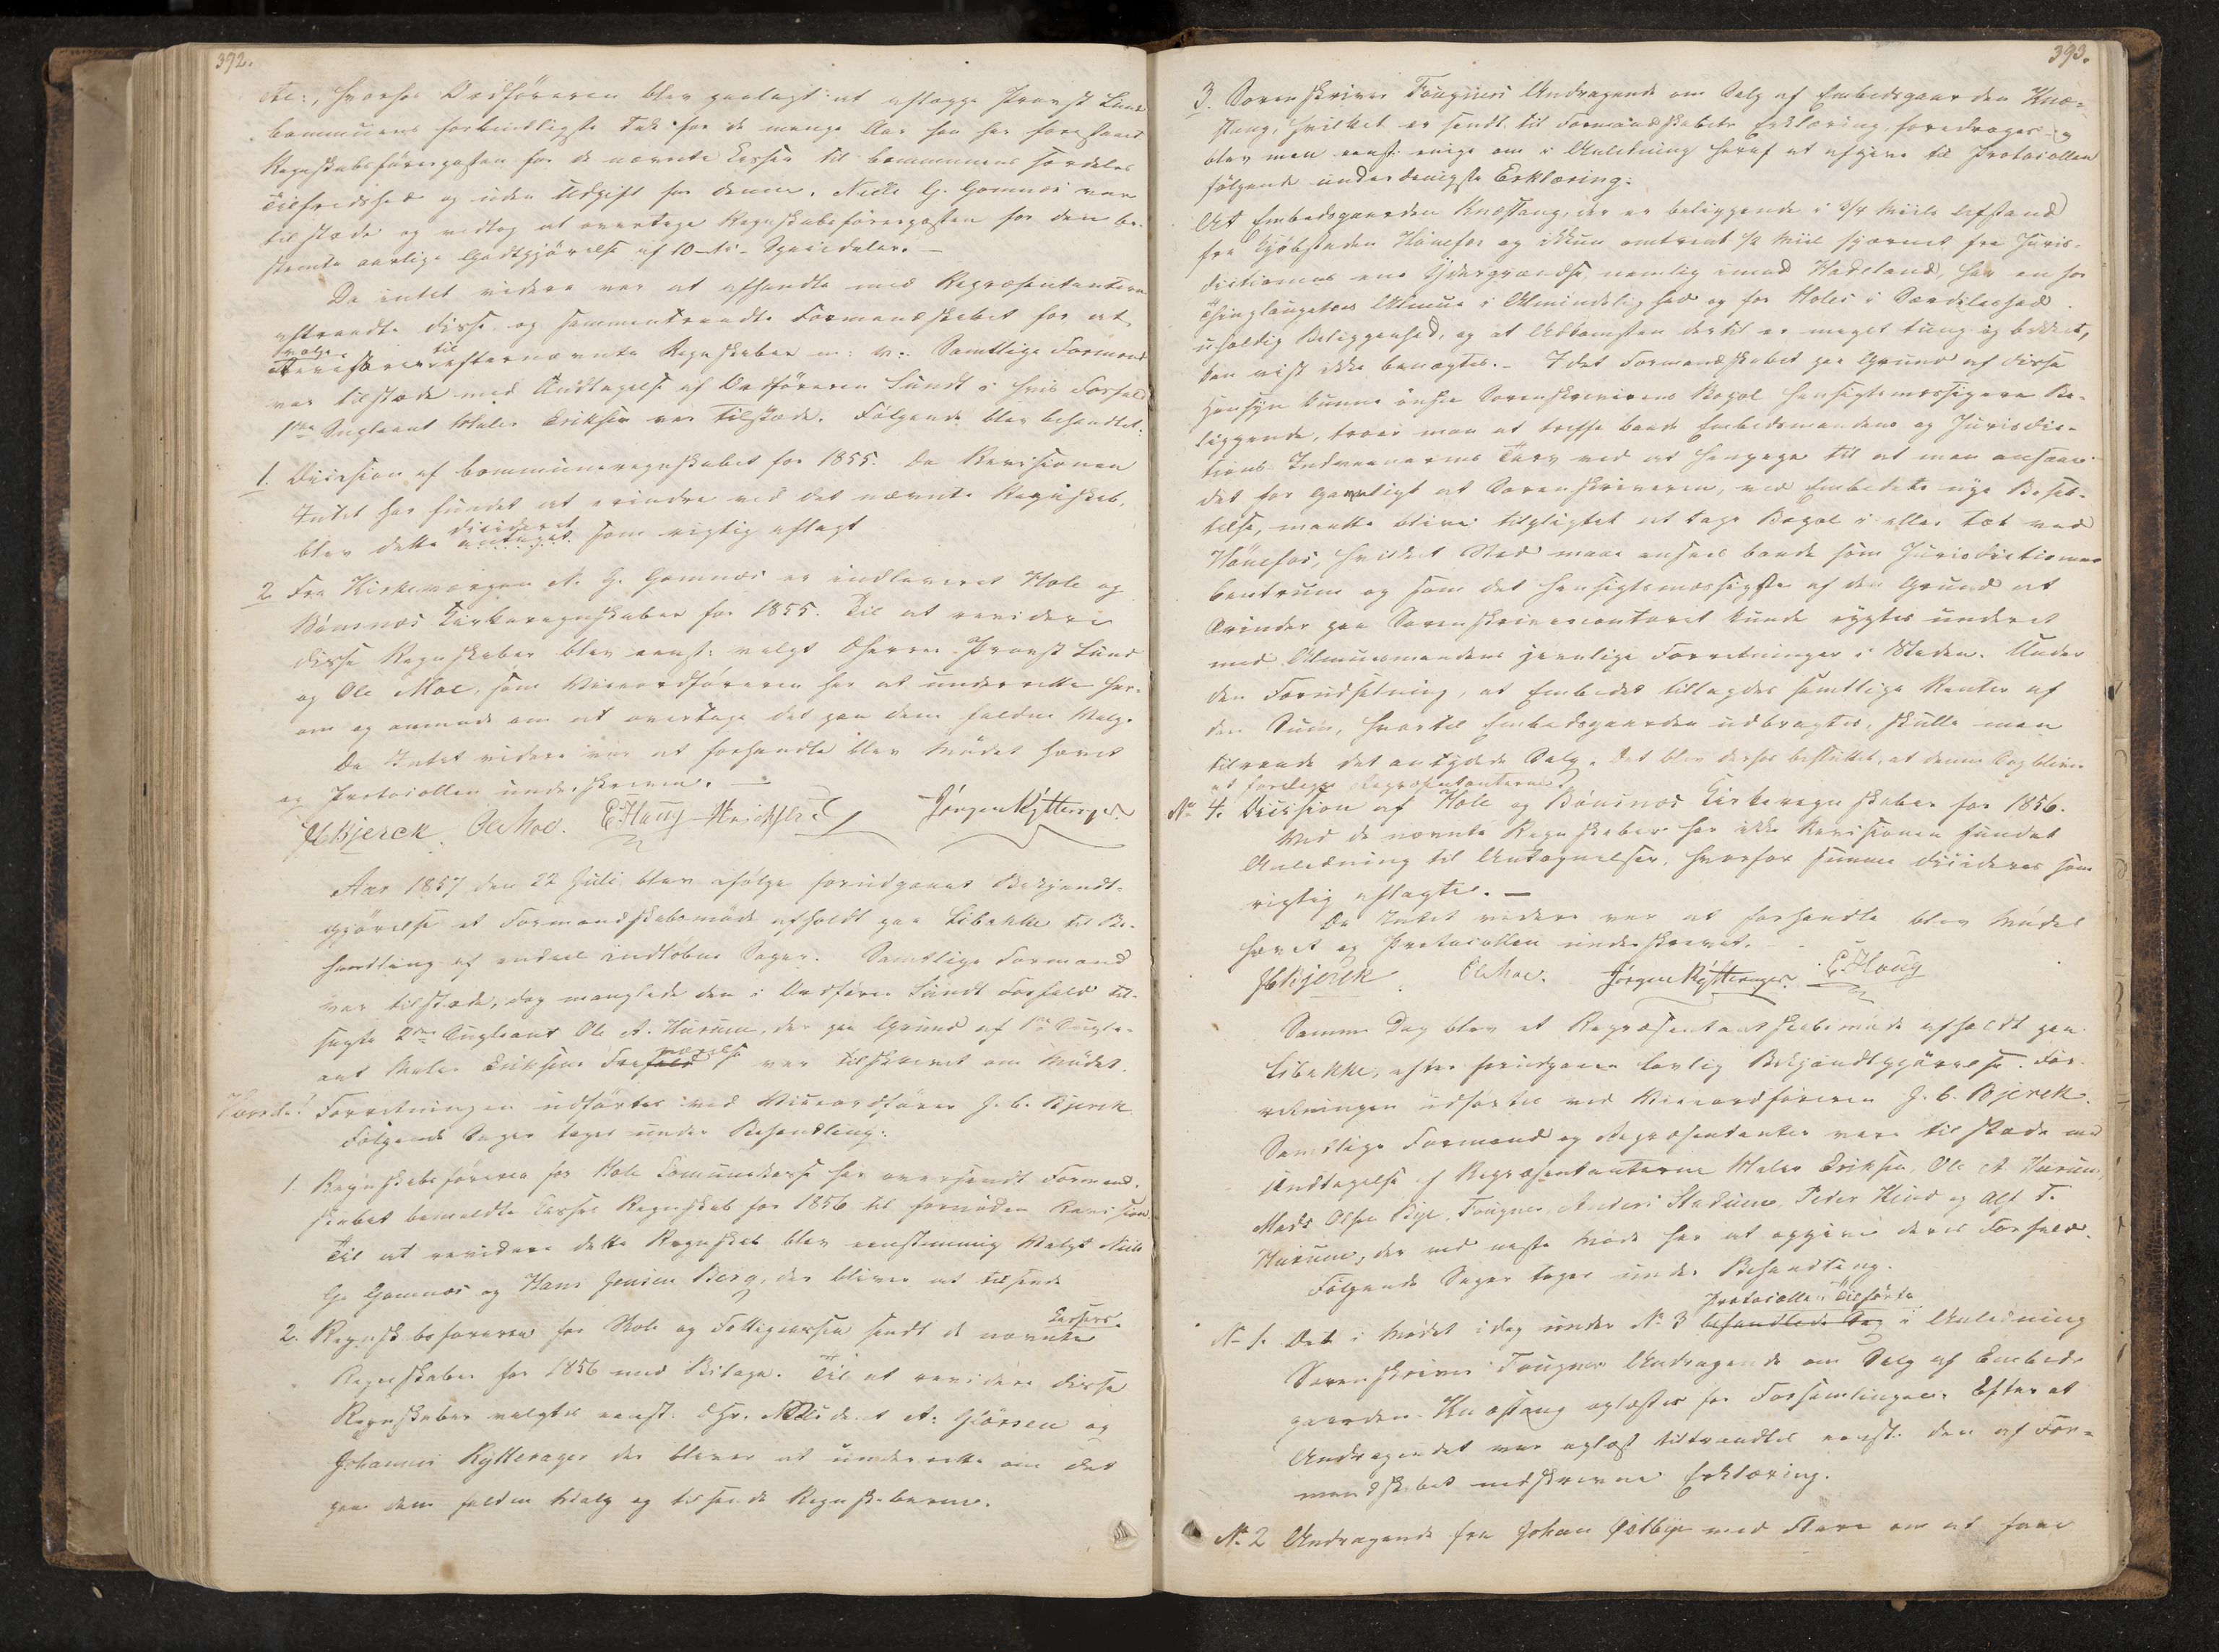 392.
etc:, hvorfor Ordföreren blev paalagt at aflægge Provst Lund
Communens forbindtligste Tak for de mange Aar han har forestaaet
Regnskabsförerposten for de nævnte Casser til Communens særdeles
Tilfredshed og uden Udgift for denne. Niels G. Gomnæs var
tilstæde og vedtog at overtage Regnskabsförerposten for den be-
stemte aarlige Godtgjörelse af 10 – ti – Speciedaler. —
Da intet videre var at afhandle med Repræsentanterne
aftraadte disse, og sammentraadte Formandskabet for at
vælge til
Revisorer efternævnte Regnskaber m: v: Samtlige Formænd
var tilstæde med Undtagelse af Ordföreren Sundt i hvis Forfald
1ste Supleant Maler Eriksen var tilstæde. Fölgende blev behandlet:
1. Decision af Communeregnskabet for 1855. Da Revisionen
Intet har fundet at erindre ved det nævnte Regnskab,
decideret
blev dette antaget som rigtig aflagt
2 Fra Kirkeværgen N. G. Gomnæs er indleveret Hole og
Bönsnæs Kirkeregnskaber for 1855. Til at revidere
disse Regnskaber blev eenst: valgt Herrer Provst Lund
og Ole Moe, som Viceordföreren har at underrette her-
om og anmode om at overtage det paa dem faldne Valg.
Da Intet videre var at forhandle blev Mödet hævet
og Protocollen underskreven. —
JCBjerck. Ole Moe. E. Haug MEriksen Jörgen Rytterager
Aar 1857 den 22 Juli blev ifölge forudgaaet Bekjendt-
gjörelse et Formandskabsmöde afholdt paa Libakke til Be-
handling af endeel indlöbne Sager. Samtlige Formænd
var tilstæde, dog manglede den i Ordförer Sundts Forfald til-
sagte 2den Supleant Ole A. Hurum, der paa Grund af 1ste Suple-
værelse
ant Maler Eriksens Frafald var tilskrevet om Mödet.
Forretningen udförtes ved Viceordförer J. C. Bjerck.
Fölgende Sager toges under Behandling:
1. Regnskabsföreren for Hole Comunekasse har oversendt Formand-
skabet bemeldte Casses Regnskab for 1856 til fornöden Revision.
Til at revidere dette Regnskab blev eenstemmig Valgt Niels
G. Gomnæs og Hans Jensen Berg, der bliver at tilsende
Cassers
2. Regnskabsföreren for Skole og Fattigcassen sendt de nævnte
Regnskaber for 1856 med Bilage. Til at revidere disse
Regnskaber valgtes eenst. Hr. Student A: Giörsen og
Johannes Rytterager der bliver at underrette om det
paa dem faldne Valg og tilsende Regnskaberne.
393.
3. Sorenskriver Fougners Andragende om Salg af Embedsgaarden Knæ-
stang, hvilket er sendt til Formandskabets Erklæring foredroges og
blev man eenst: enige om i Anledning heraf at afgive til Protocollen
fölgende underdanigste Erklæring:
At Embedsgaarden Knæstang, der er beliggende i 3/4 Miils Afstand
fra Kjöbstaden Hönefos og ikkun omtrent 1/2 Miil fjærnet fra Juris-
dictionens ene Ydergrændse, nemlig imod Hadeland, har en for
Thinglaugets Almue i Almindelighed og for Holes i Særdeleshed
uheldig Beliggenhed, og at Adkomsten dertil er meget tung og bakket,
kan vist ikke benægtes. – Idet Formandskabet paa Grund af disse
Hensyn kunne önske Sorenskriverens Bopæl hensigtsmæssigere Be-
liggende, troer man at treffe baade Embedsmandens og Jurisdic-
tions Indvaanernes Tarv ved at henpege til at man ansaae
det for gavnligt at Sorenskriveren, ved Embedets nye Besæt-
telse, maatte blive tilpligtet at tage Bopæl i eller tæt ved
Hönefos, hvilket Sted maae ansees baade som Jurisdictionens
Centrum og som det hensigtsmæssigste af den Grund at
Ærinder paa Sorenskrivercontoret kunde rygtes underet
med Almuesmandens jævnlige Forretninger i Staden. Under
den Forudsætning, at Embedet tillagdes samtlige Renter af
den Sum, hvortil Embedsgaarden udbragtes, skulle man
tilraade det antydede Salg. Det blev derhos besluttet, at denne Sag bliver
at forelægge Repræsentanterne.
No 4. Decision af Hole og Bönsnæs Kirkeregnskaber for 1856.
Ved de nævnte Regnskaber har ikke Revisionen fundet
Anledning til Antegnelser, hvorfor samme decideres som
rigtig aflagte. —
Da Intet videre var at forhandle blev Mödet
hævet og Protocollen underskrevet.
JCBjerck. Ole Moe. Jörgen Rytterager. E. Haug
Samme Dag blev et Repræsentantskabsmöde afholdt paa
Libakke, efter forudgaaen lovlig Bekjendtgjörelse. For-
retningen udförtes ved Viceordföreren J. C. Bjerck.
Samtlige Formænd og Repræsentanter vare tilstæde med
Undtagelse af Repræsentanterne Maler Eriksen, Ole A. Hurum,
Mads Olsen Bye, Fougner, Anders Stadum, Peder Hund og Alf T.
Hurum, der ved næste Möde har at opgive deres Forfald.
Fölgende Sager toges under Behandling.
Protocollen Tilförte
No 1. Det i Mödet idag under No 3 behandlede Sag i Anledning
Sorenskriver Fougners Andragende om Salg af Embeds-
gaarden Knæstang oplæstes for Forsamlingen. Efter at
Andragendet var oplæst tiltraadtes eenst. den af For-
mandskabet nedskrevne Erklæring.
No 2 Andragende fra Johan Östbye med Flere om at faae